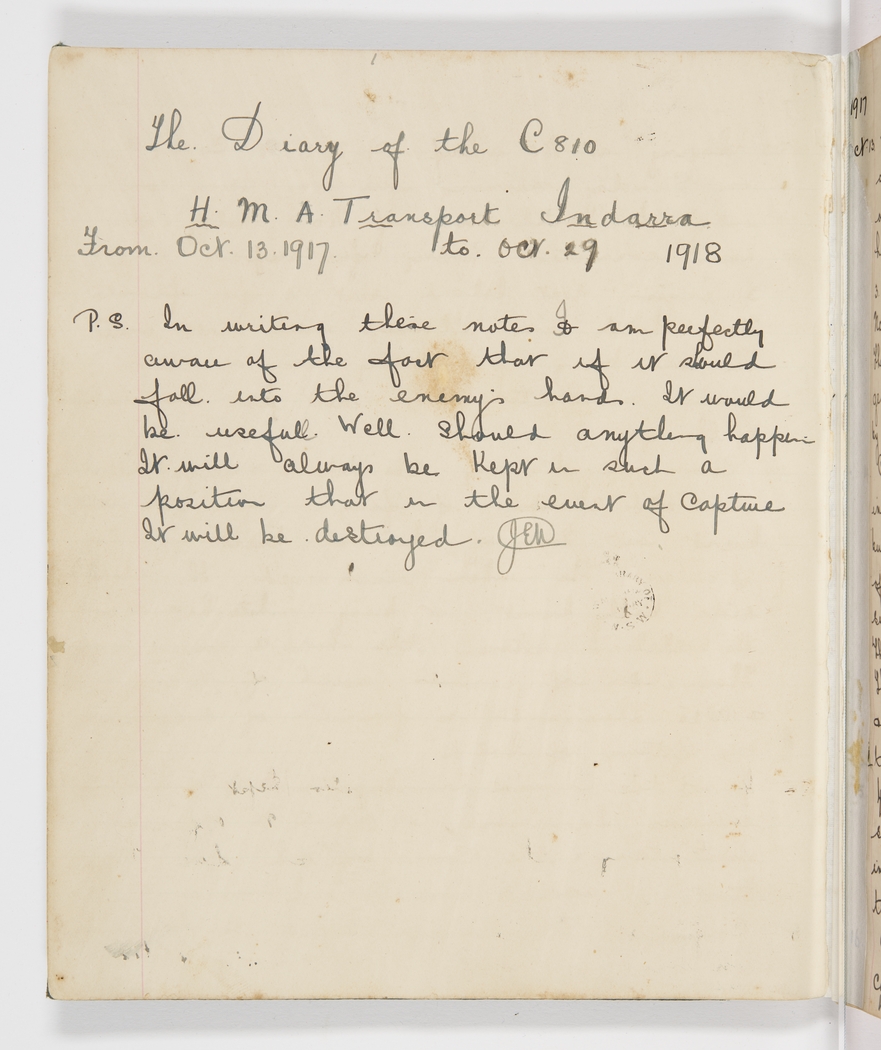 The. Diary of the C 810
H. M. A. Transport Indarra
From. Oct. 13. 1917. to. Oct. 29 1918
P. S. In writing these notes I am perfectly
aware of the fact that if it should
fall. into the enemy's hands. It would
be. usefull. Well. Should anything happen
It will always be Kept in such a
position that in the event of Capture
It will be destroyed. JEW
1917